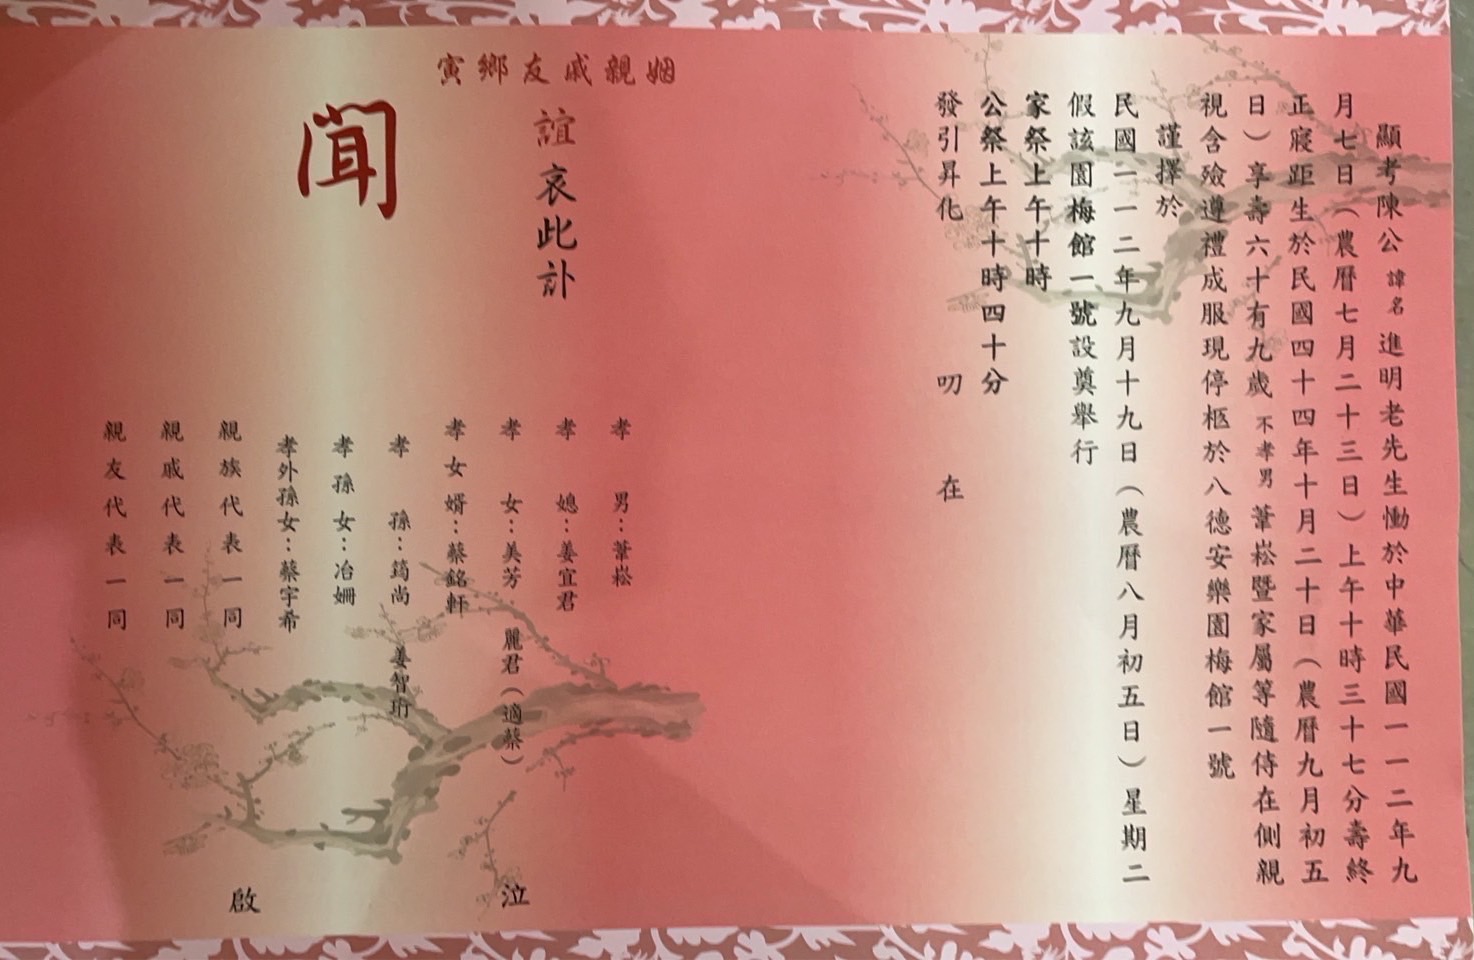 顯考陳公諱名進明老先生慟於中華民國一一二年九
月七日（農曆七月二十三日）上午十時三十七分壽終
正寢距生於民國四十四年十月二十日（農曆九月初五
日）享壽六十有九歲不孝男葦崧暨家屬等隨侍在側親
視含殮遵禮成服現停柩於八德安樂園梅館一號
謹擇於
民國一一二年九月十九日（農曆八月初五日）星期二
假該園梅館一號設奠舉行
家祭上午十時
公祭上午十時四十分
發引昇化 叨 在
寅鄉友戚親姻
誼哀此訃
聞
孝男：葦崧
孝媳：姜宜君
孝女：美芳 麗君（適蔡）
孝女婿：蔡銘軒
孝孫：筠尚 姜智珩
孝孫女：冶姍
孝外孫女：蔡宇希
親族代表一同
親戚代表一同
親友代表一同
泣
啟